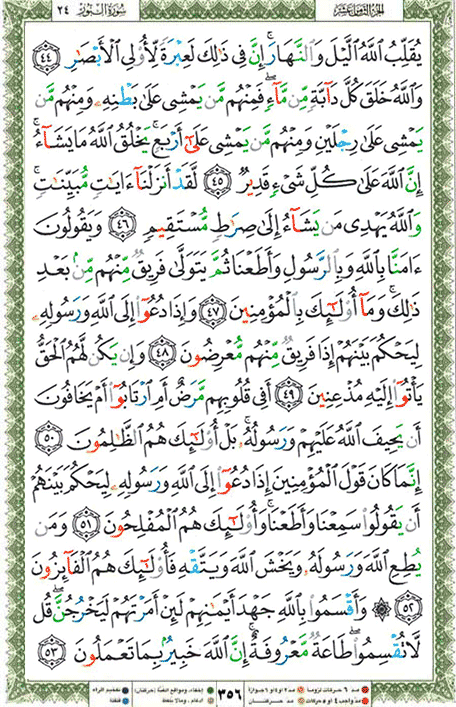 الجزء الثامن عشر
سورة النور ٢٤
يُقَلِّبُ ٱللَّهُ ٱلَّيْلَ وَٱلنَّهَارَ ۚ إِنَّ فِى ذَٰلِكَ لَعِبْرَةً لِّأُو۟لِى ٱلْأَبْصَـٰرِ ٤٤
وَٱللَّهُ خَلَقَ كُلَّ دَآبَّةٍ مِّن مَّآءٍ ۖ فَمِنْهُم مَّن يَمْشِى عَلَىٰ بَطْنِهِۦ وَمِنْهُم مَّن
يَمْشِى عَلَىٰ رِجْلَيْنِ وَمِنْهُم مَّن يَمْشِى عَلَىٰٓ أَرْبَعٍ ۚ يَخْلُقُ ٱللَّهُ مَا يَشَآءُ ۚ
إِنَّ ٱللَّهَ عَلَىٰ كُلِّ شَىْءٍ قَدِيرٌ ٤٥ لَّقَدْ أَنزَلْنَآ ءَايَـٰتٍ مُّبَيِّنَـٰتٍ ۚ
وَٱللَّهُ يَهْدِى مَن يَشَآءُ إِلَىٰ صِرَٰطٍ مُّسْتَقِيمٍ ٤٦ وَيَقُولُونَ
ءَامَنَّا بِٱللَّهِ وَبِٱلرَّسُولِ وَأَطَعْنَا ثُمَّ يَتَوَلَّىٰ فَرِيقٌ مِّنْهُم مِّنۢ بَعْدِ
ذَٰلِكَ ۚ وَمَآ أُو۟لَـٰٓئِكَ بِٱلْمُؤْمِنِينَ ٤٧ وَإِذَا دُعُوٓا۟ إِلَى ٱللَّهِ وَرَسُولِهِۦ
لِيَحْكُمَ بَيْنَهُمْ إِذَا فَرِيقٌ مِّنْهُم مُّعْرِضُونَ ٤٨ وَإِن يَكُن لَّهُمُ ٱلْحَقُّ
يَأْتُوٓا۟ إِلَيْهِ مُذْعِنِينَ ٤٩ أَفِى قُلُوبِهِم مَّرَضٌ أَمِ ٱرْتَابُوٓا۟ أَمْ يَخَافُونَ
أَن يَحِيفَ ٱللَّهُ عَلَيْهِمْ وَرَسُولُهُۥ ۚ بَلْ أُو۟لَـٰٓئِكَ هُمُ ٱلظَّـٰلِمُونَ ٥٠
إِنَّمَا كَانَ قَوْلَ ٱلْمُؤْمِنِينَ إِذَا دُعُوٓا۟ إِلَى ٱللَّهِ وَرَسُولِهِۦ لِيَحْكُمَ بَيْنَهُمْ
أَن يَقُولُوا۟ سَمِعْنَا وَأَطَعْنَا ۚ وَأُو۟لَـٰٓئِكَ هُمُ ٱلْمُفْلِحُونَ ٥١ وَمَن
يُطِعِ ٱللَّهَ وَرَسُولَهُۥ وَيَخْشَ ٱللَّهَ وَيَتَّقْهِ فَأُو۟لَـٰٓئِكَ هُمُ ٱلْفَآئِزُونَ
٥٢ ۞ وَأَقْسَمُوا۟ بِٱللَّهِ جَهْدَ أَيْمَـٰنِهِمْ لَئِنْ أَمَرْتَهُمْ لَيَخْرُجُنَّ ۖ قُل
لَّا تُقْسِمُوا۟ ۖ طَاعَةٌ مَّعْرُوفَةٌ ۚ إِنَّ ٱللَّهَ خَبِيرٌۢ بِمَا تَعْمَلُونَ ٥٣
مد ٦ حركات لزوما مد ٢ أو ٤ أو ٦ جوازا إخفاء، ومواقع الغنة (حركتان) تفخيم الراء
مد واجب ٤ أو ٥ حركات مد حركتان ٣٥٦ إدغام، ومالا يلفظ قلقلة